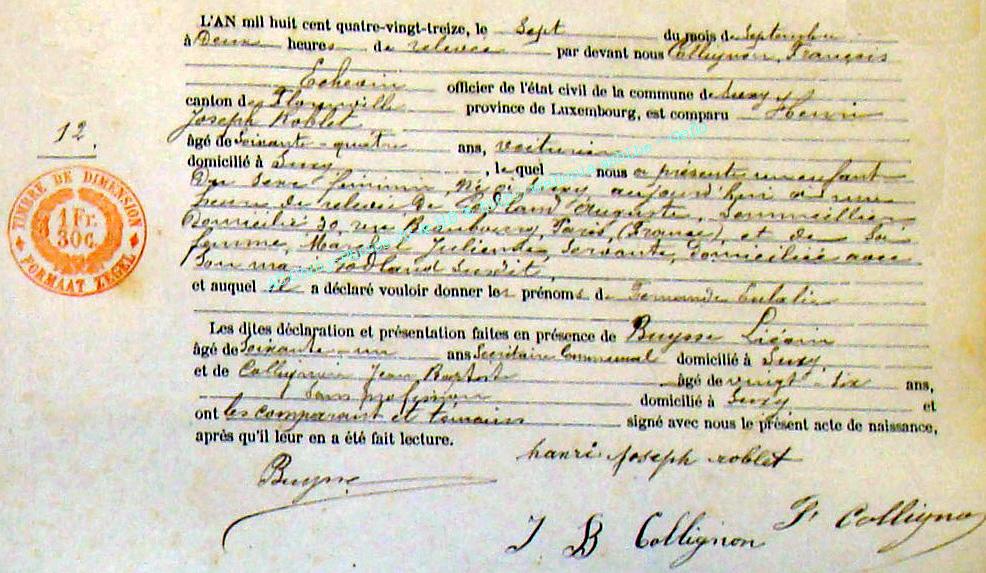 L'AN mil huit cent quatre-vingt-treize, le Sept du mois de Septembre
à Deux heures de relevée par devant nous Collignon, François
Echevin officier de l'état civil de la commune de Suxy
canton de Florenville province de Luxembourg, est comparu Henri
Joseph Roblet
12.
âgé de Soixante-quatre ans, voiturier
domicilié à Suxy, le quel nous a présenté un enfant
Du sexe féminin, né à Suxy aujourd'hui à une
heure de relevée de Godland Auguste, Sommellier
Domicilié 30, rue Beaubourg, Paris, (France), et de Sa
femme, Julienne, Servante, Domiciliée avec
Son mari Godland Susdit,
et auquel il a déclaré vouloir donner les prénoms de Fernande Eulalie
Les dites déclaration et présentation faites en présence de Buysse
âgé de Soixante-un ans Secrétaire Communal domicilié à Suxy
et de Collignon Jean Baptiste âgé de vingt-six ans,
Sans profession domicilié à Suxy et
ont les comparant et témoins signé avec nous le présent acte de naissance,
après qu'il leur en a été fait lecture.
henri joseph roblet
Buysse
J B Collignon
F Collignon
TIMBRE DE DIMENSION
1 Fr.
30c.
FORMAAT ZEGEL